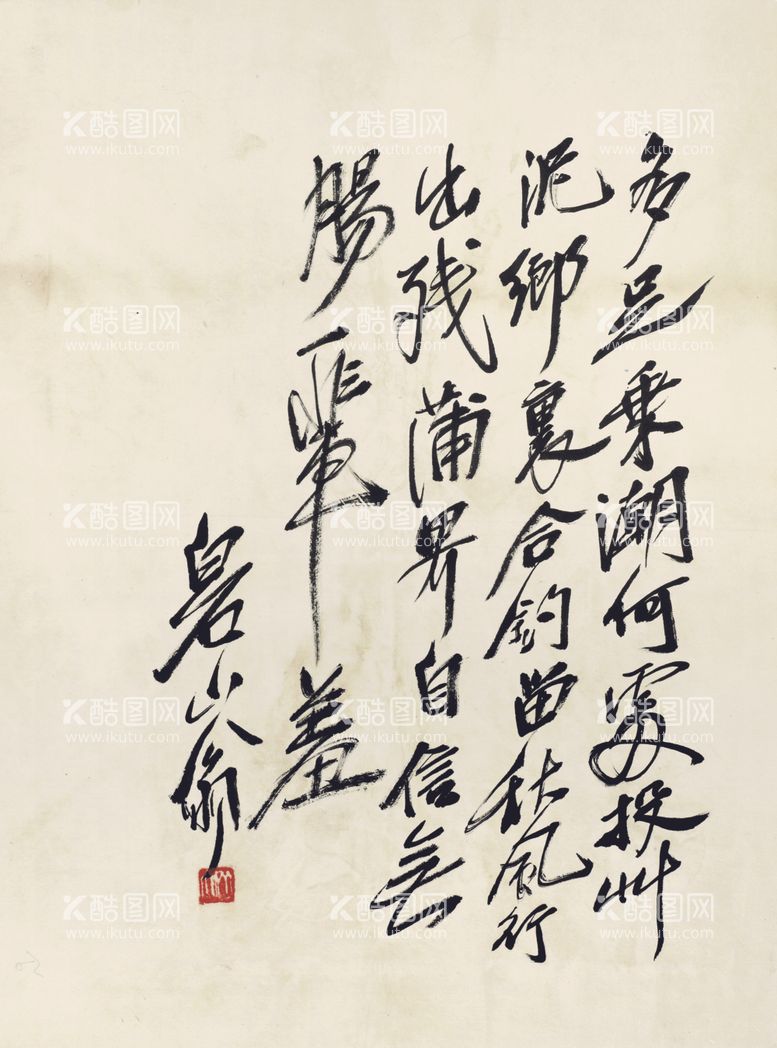 多足乘潮何處投艸
泥鄉裏合鈎留秋風行
出殘蒲界自信無
腸輩羞
白石山翁
K酷图网
www.ikutu.com